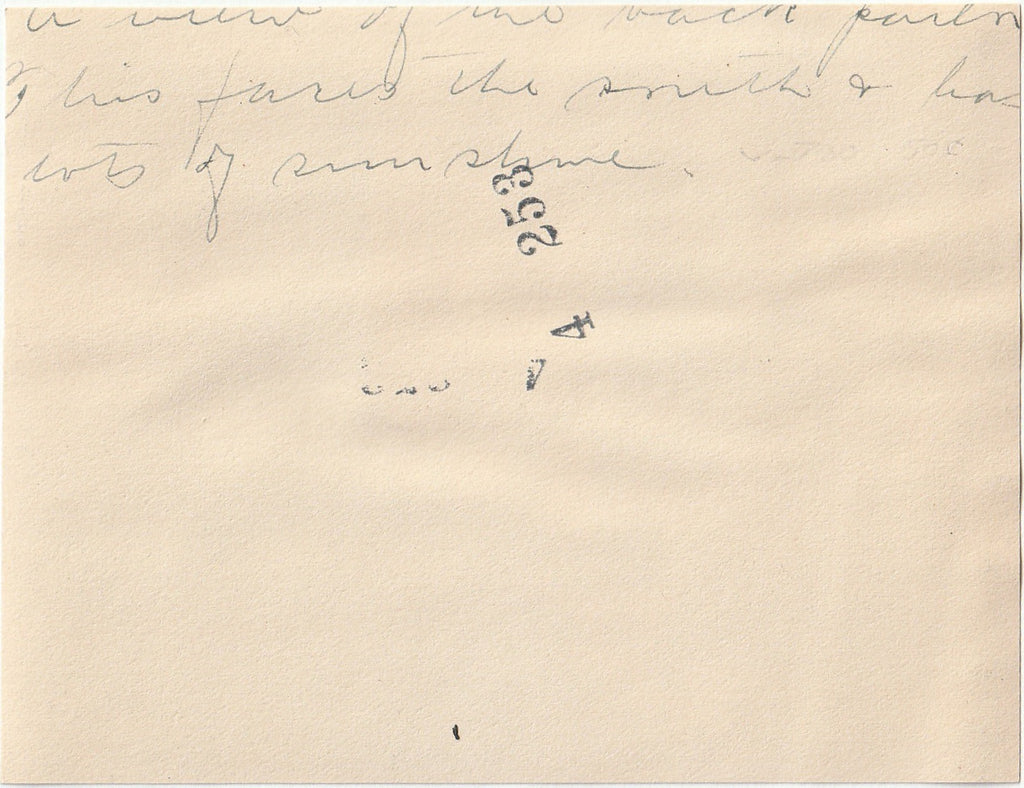 a view of the back parlor
This faces the south & has
lots of sunshine.
253
4